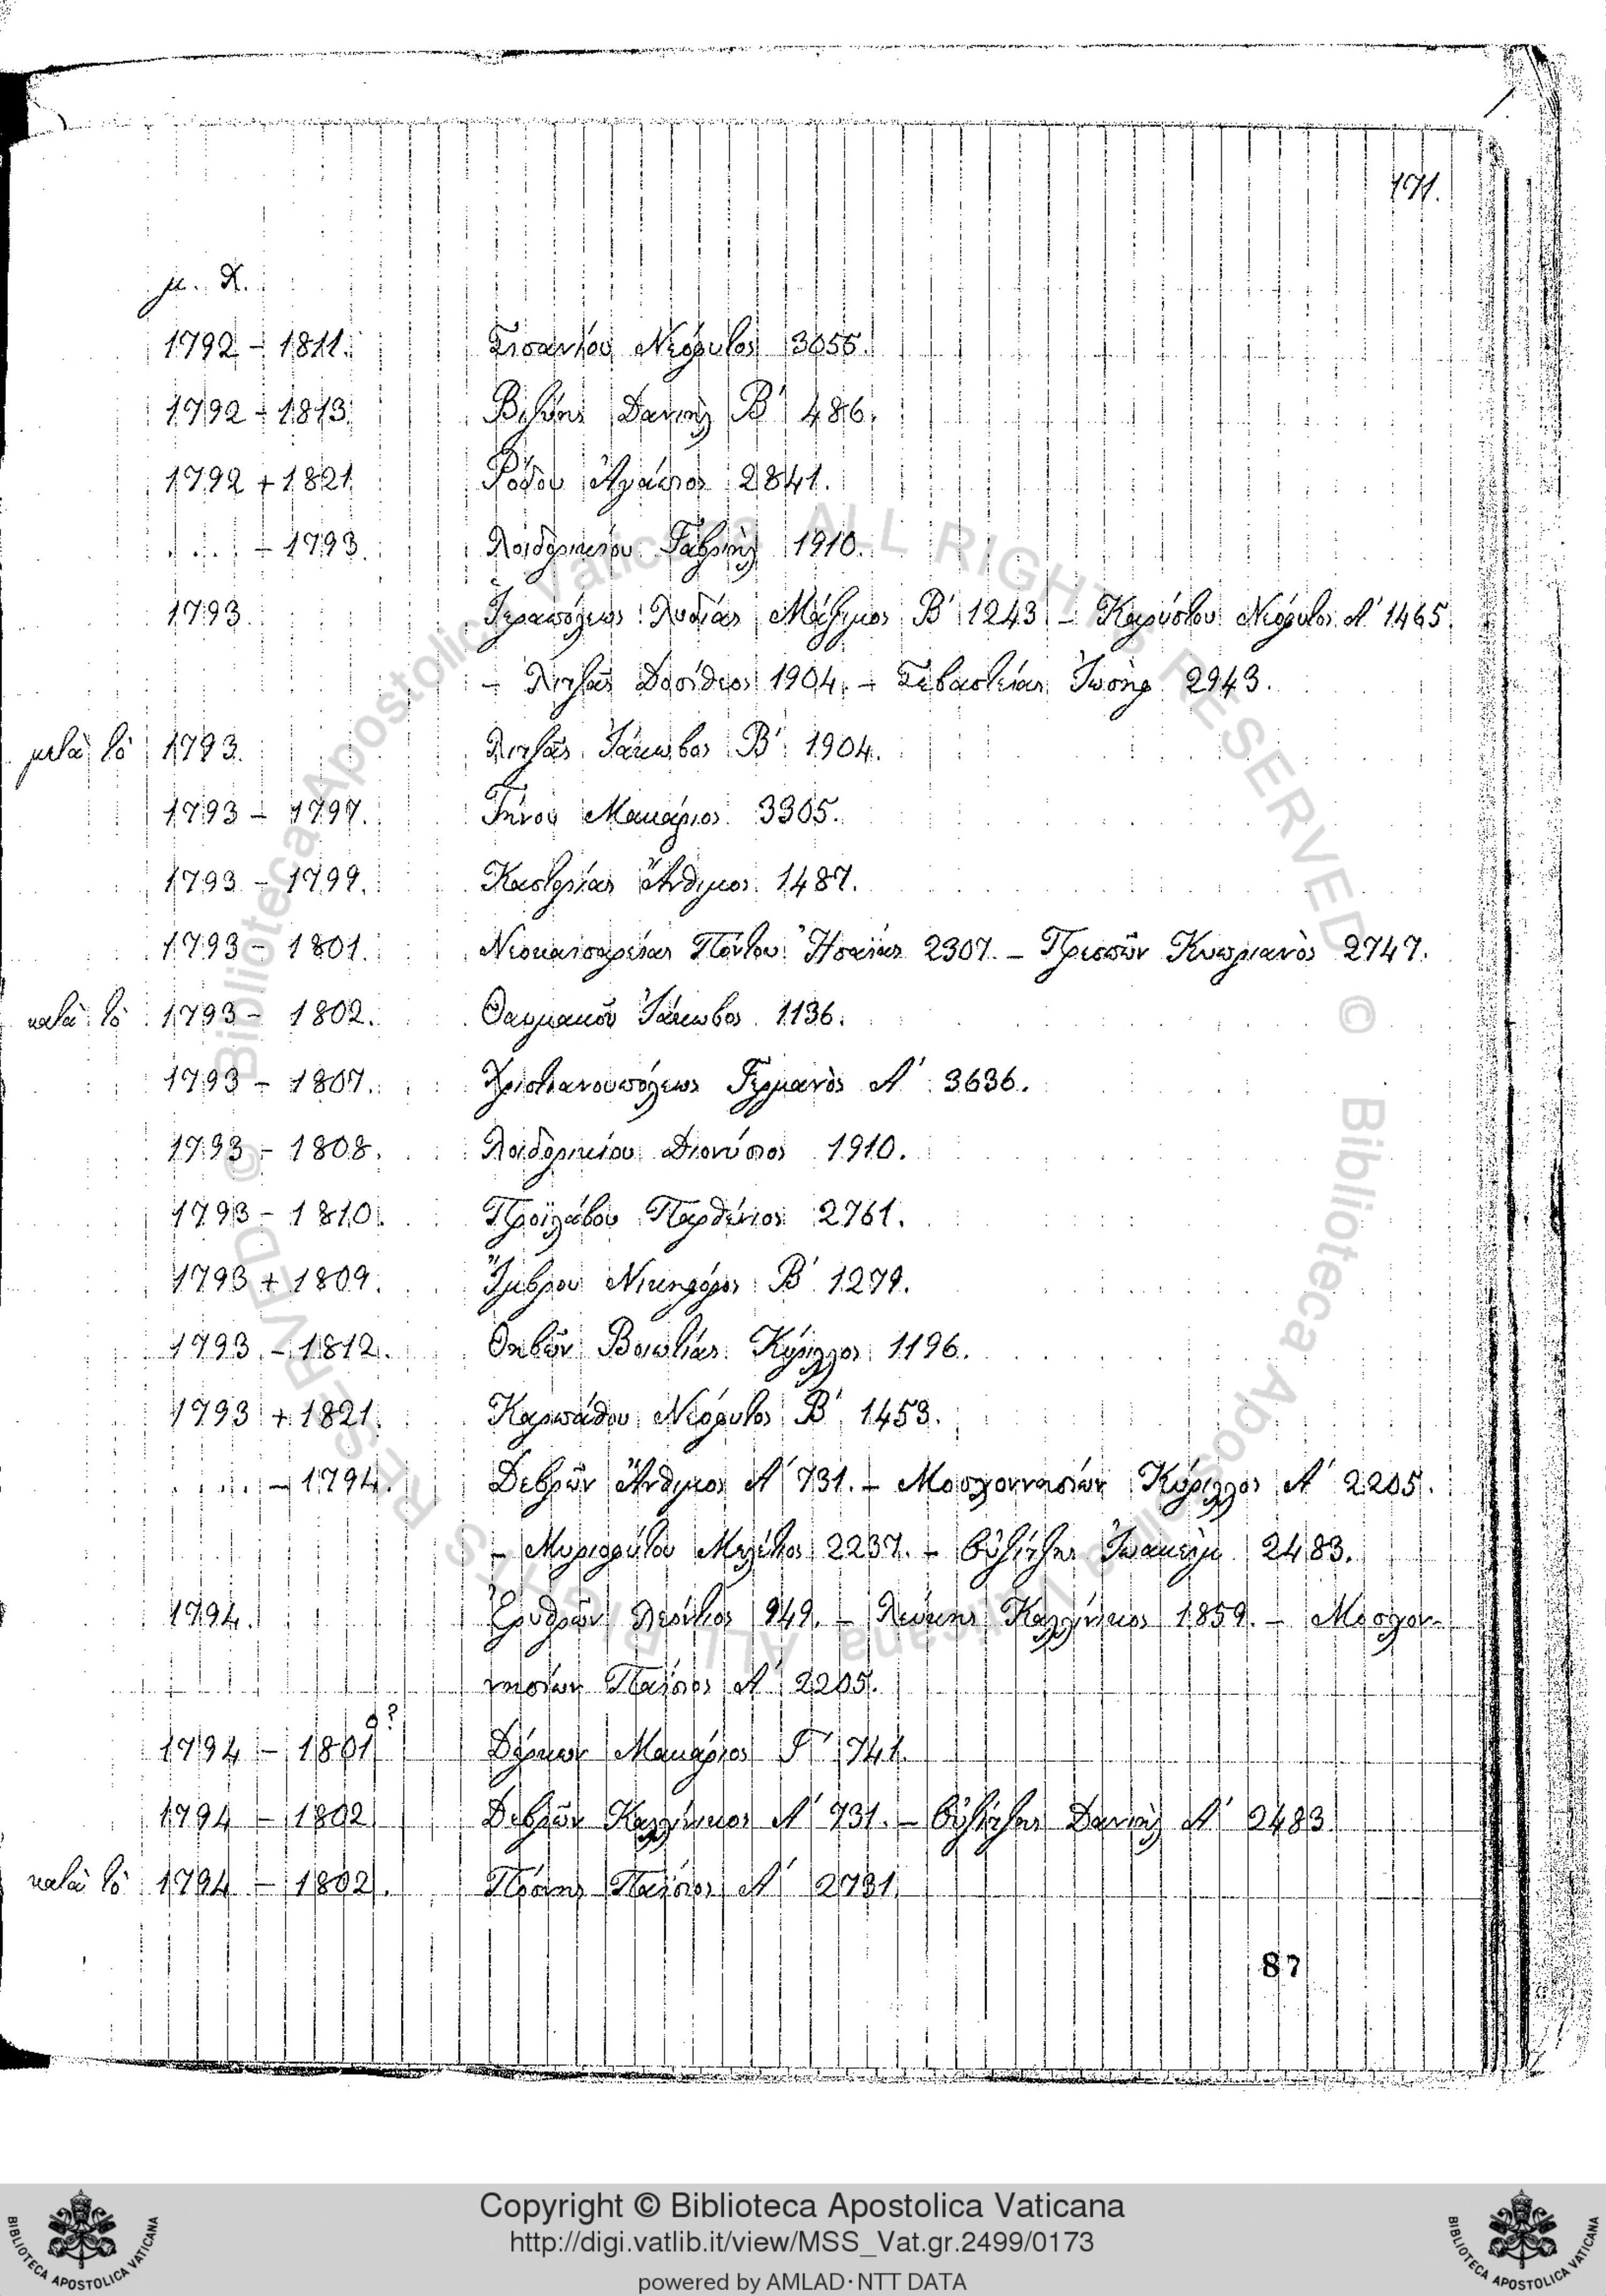 171.
μ. Χ.
1792 – 1811. Σισανίου Νεόφυτος 3055.
1792 – 1813. Βιζύης Δανιὴλ Β΄ 486.
1792 + 1821. Ῥόδου Ἀγάπιος 2841.
. . . . – 1793. Λοιδορικίου Γαβριὴλ 1910.
1793. Ἱεραπόλεως Λυδίας Μάξιμος Β΄ 1243 – Καρύστου Νεόφυτος Α΄ 1465.
– Λιτζᾶς Δοσίθεος 1904. – Σεβαστείας Ἰωσὴφ 2943.
μετὰ τὸ 1793. Λιτζᾶς Ἰάκωβος Β΄ 1904.
1793 – 1797. Τήνου Μακάριος 3305.
1793 – 1799. Καστορίας Ἄνθιμος 1487.
1793 – 1801. Νεοκαισαρείας Πόντου Ἡσαΐας 2307. – Πρεσπῶν Κυπριανὸς 2747.
κατὰ τὸ 1793 – 1802. Θαυμακοῦ Ἰάκωβος 1136.
1793 – 1807. Χριστιανουπόλεως Γερμανὸς Α΄ 3636.
1793 – 1808. Λοιδορικίου Διονύσιος 1910.
1793 – 1810. Προϊλάβου Παρθένιος 2761.
1793 + 1809. Ἴμβρου Νικηφόρος Β΄ 1279.
1793 – 1812. Θηβῶν Βοιωτίας Κύριλλος 1196.
1793 + 1821. Καρπάθου Νεόφυτος Β΄ 1453.
. . . . – 1794. Δεβρῶν Ἄνθιμος Α΄ 731. – Μοσχονησίων Κύριλλος Α΄ 2205.
– Μυριοφύτου Μελέτιος 2237. – Οὐζίτζης Ἰωακεὶμ 2483.
1794. Ἐρυθρῶν Λεόντιος 949. – Λεύκης Καλλίνικος 1859. – Μοσχον-
νησίων Παΐσιος Α΄ 2205.
1794 – 1801 9? Δέρκων Μακάριος Γ΄ 741.
1794 – 1802 Δεβρῶν Καλλίνικος Α΄ 731. – Οὐζίτζης Δανιὴλ Α΄ 2483
κατὰ τὸ 1794 – 1802. Πρόκης Παΐσιος Α΄ 2731.
87
Copyright © Biblioteca Apostolica Vaticana
http://digi.vatlib.it/view/MSS_Vat.gr.2499/0173
powered by AMLAD·NTT DATA